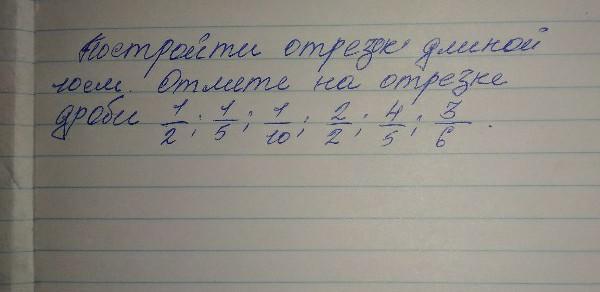 Постройти отрезок длиной
10см. Отмите на отрезке
дроби 1/2; 1/5; 1/10; 2/2; 4/5; 3/6.